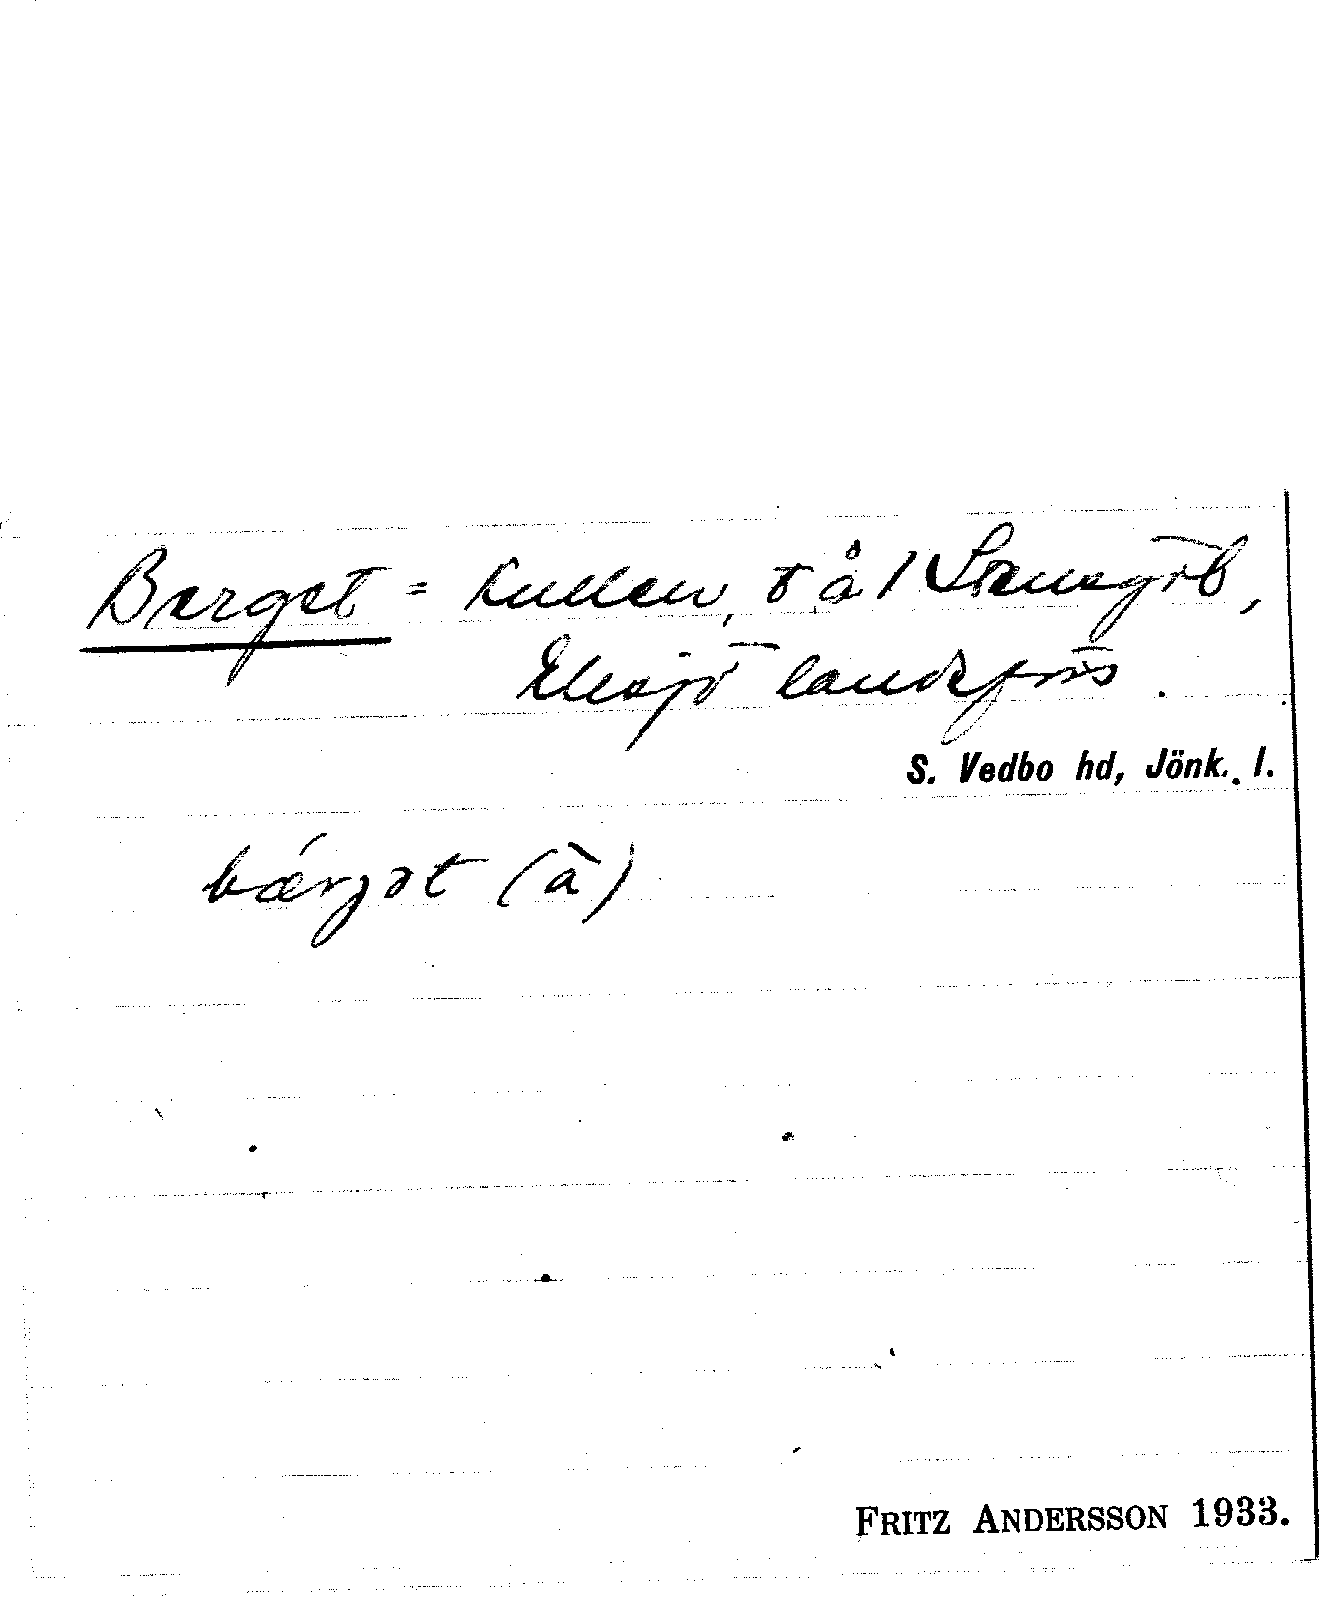 Berget = Kullen, t å 1 Stensgöl,
Eksjö landsförs.
S. Vedbo hd, Jönk. l.
bǽrjət (à)
FRITZ ANDERSSON 1933.